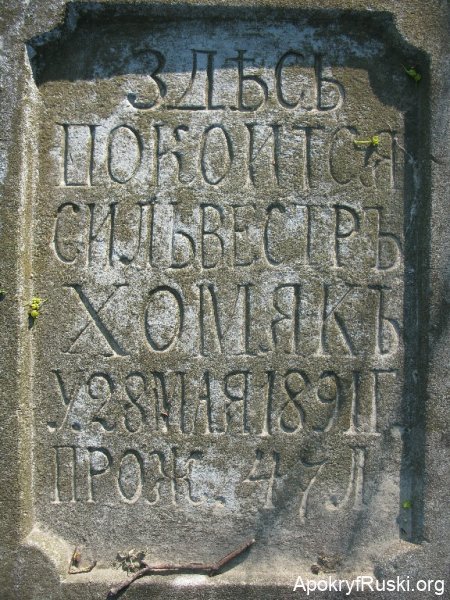 ЗДѢСЬ
ПОКОИТСЯ
СИЛЬВЕСТРЪ
ХОМЯКЪ
У. 28 МАЯ 1891 Г.
ПРОЖ. 47 Л
ApokryfRuski.org